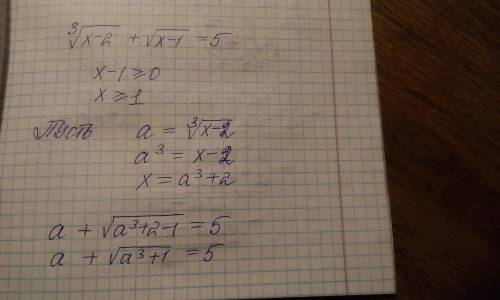 ∛(x-2) + √(x-1) = 5
x-1 ≥ 0
x ≥ 1
Пусть a = ∛(x-2)
a³ = x-2
x = a³+2
a + √(a³+2-1) = 5
a + √(a³+1) = 5